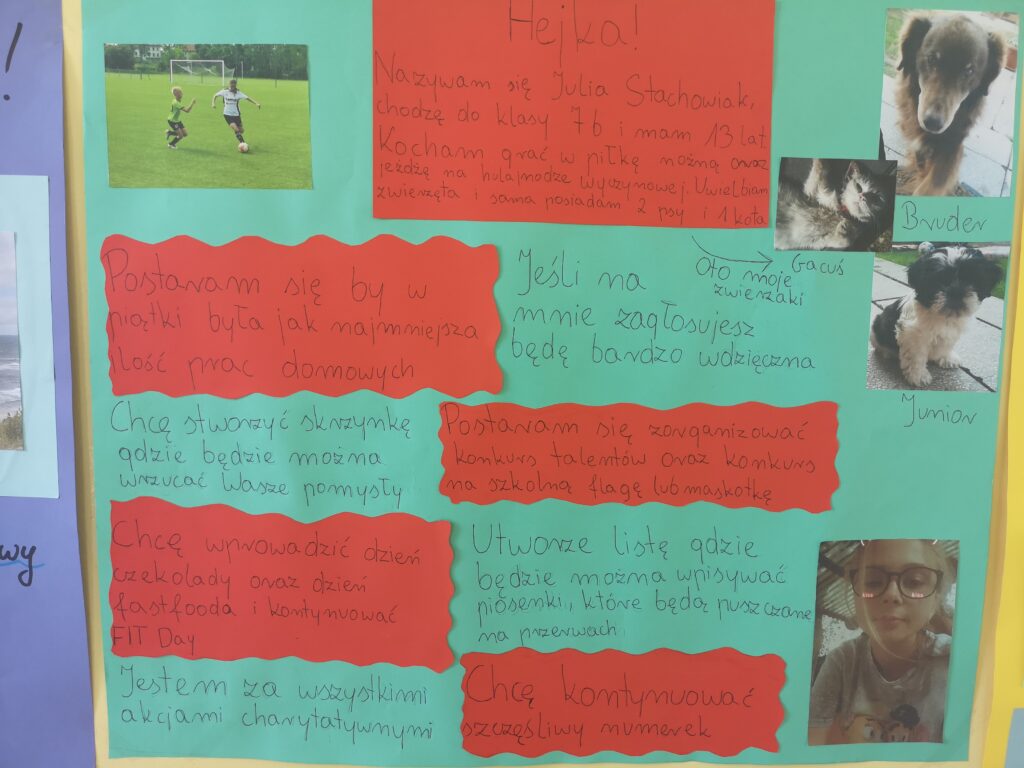 !
Hejka!
Nazywam się Julia Stachowiak,
chodzę do klasy 7b i mam 13 lat.
Kocham grać w piłkę nożną oraz
jeżdżę na hulajnodze wyczynowej. Uwielbiam
zwierzęta i sama posiadam 2 psy i 1 kota
Bruder
Gacuś
Oto moje
zwierzaki
Junior
Postaram się by w
piątki była jak najmniejsza
ilość prac domowych
Jeśli na
mnie zagłosujesz
będę bardzo wdzięczna
Chcę stworzyć skrzynkę
gdzie będzie można
wrzucać Wasze pomysły
Postaram się zorganizować
konkurs talentów oraz konkurs
na szkolną flagę lub maskotkę
Chcę wprowadzić dzień
czekolady oraz dzień
fastfooda i kontynuować
FIT Day
Utworze listę gdzie
będzie można wpisywać
piosenki, które będą puszczane
na przerwach
Jestem za wszystkimi
akcjami charytatywnymi
Chcę kontynuować
szczęśliwy numerek
kiss kiss
wy